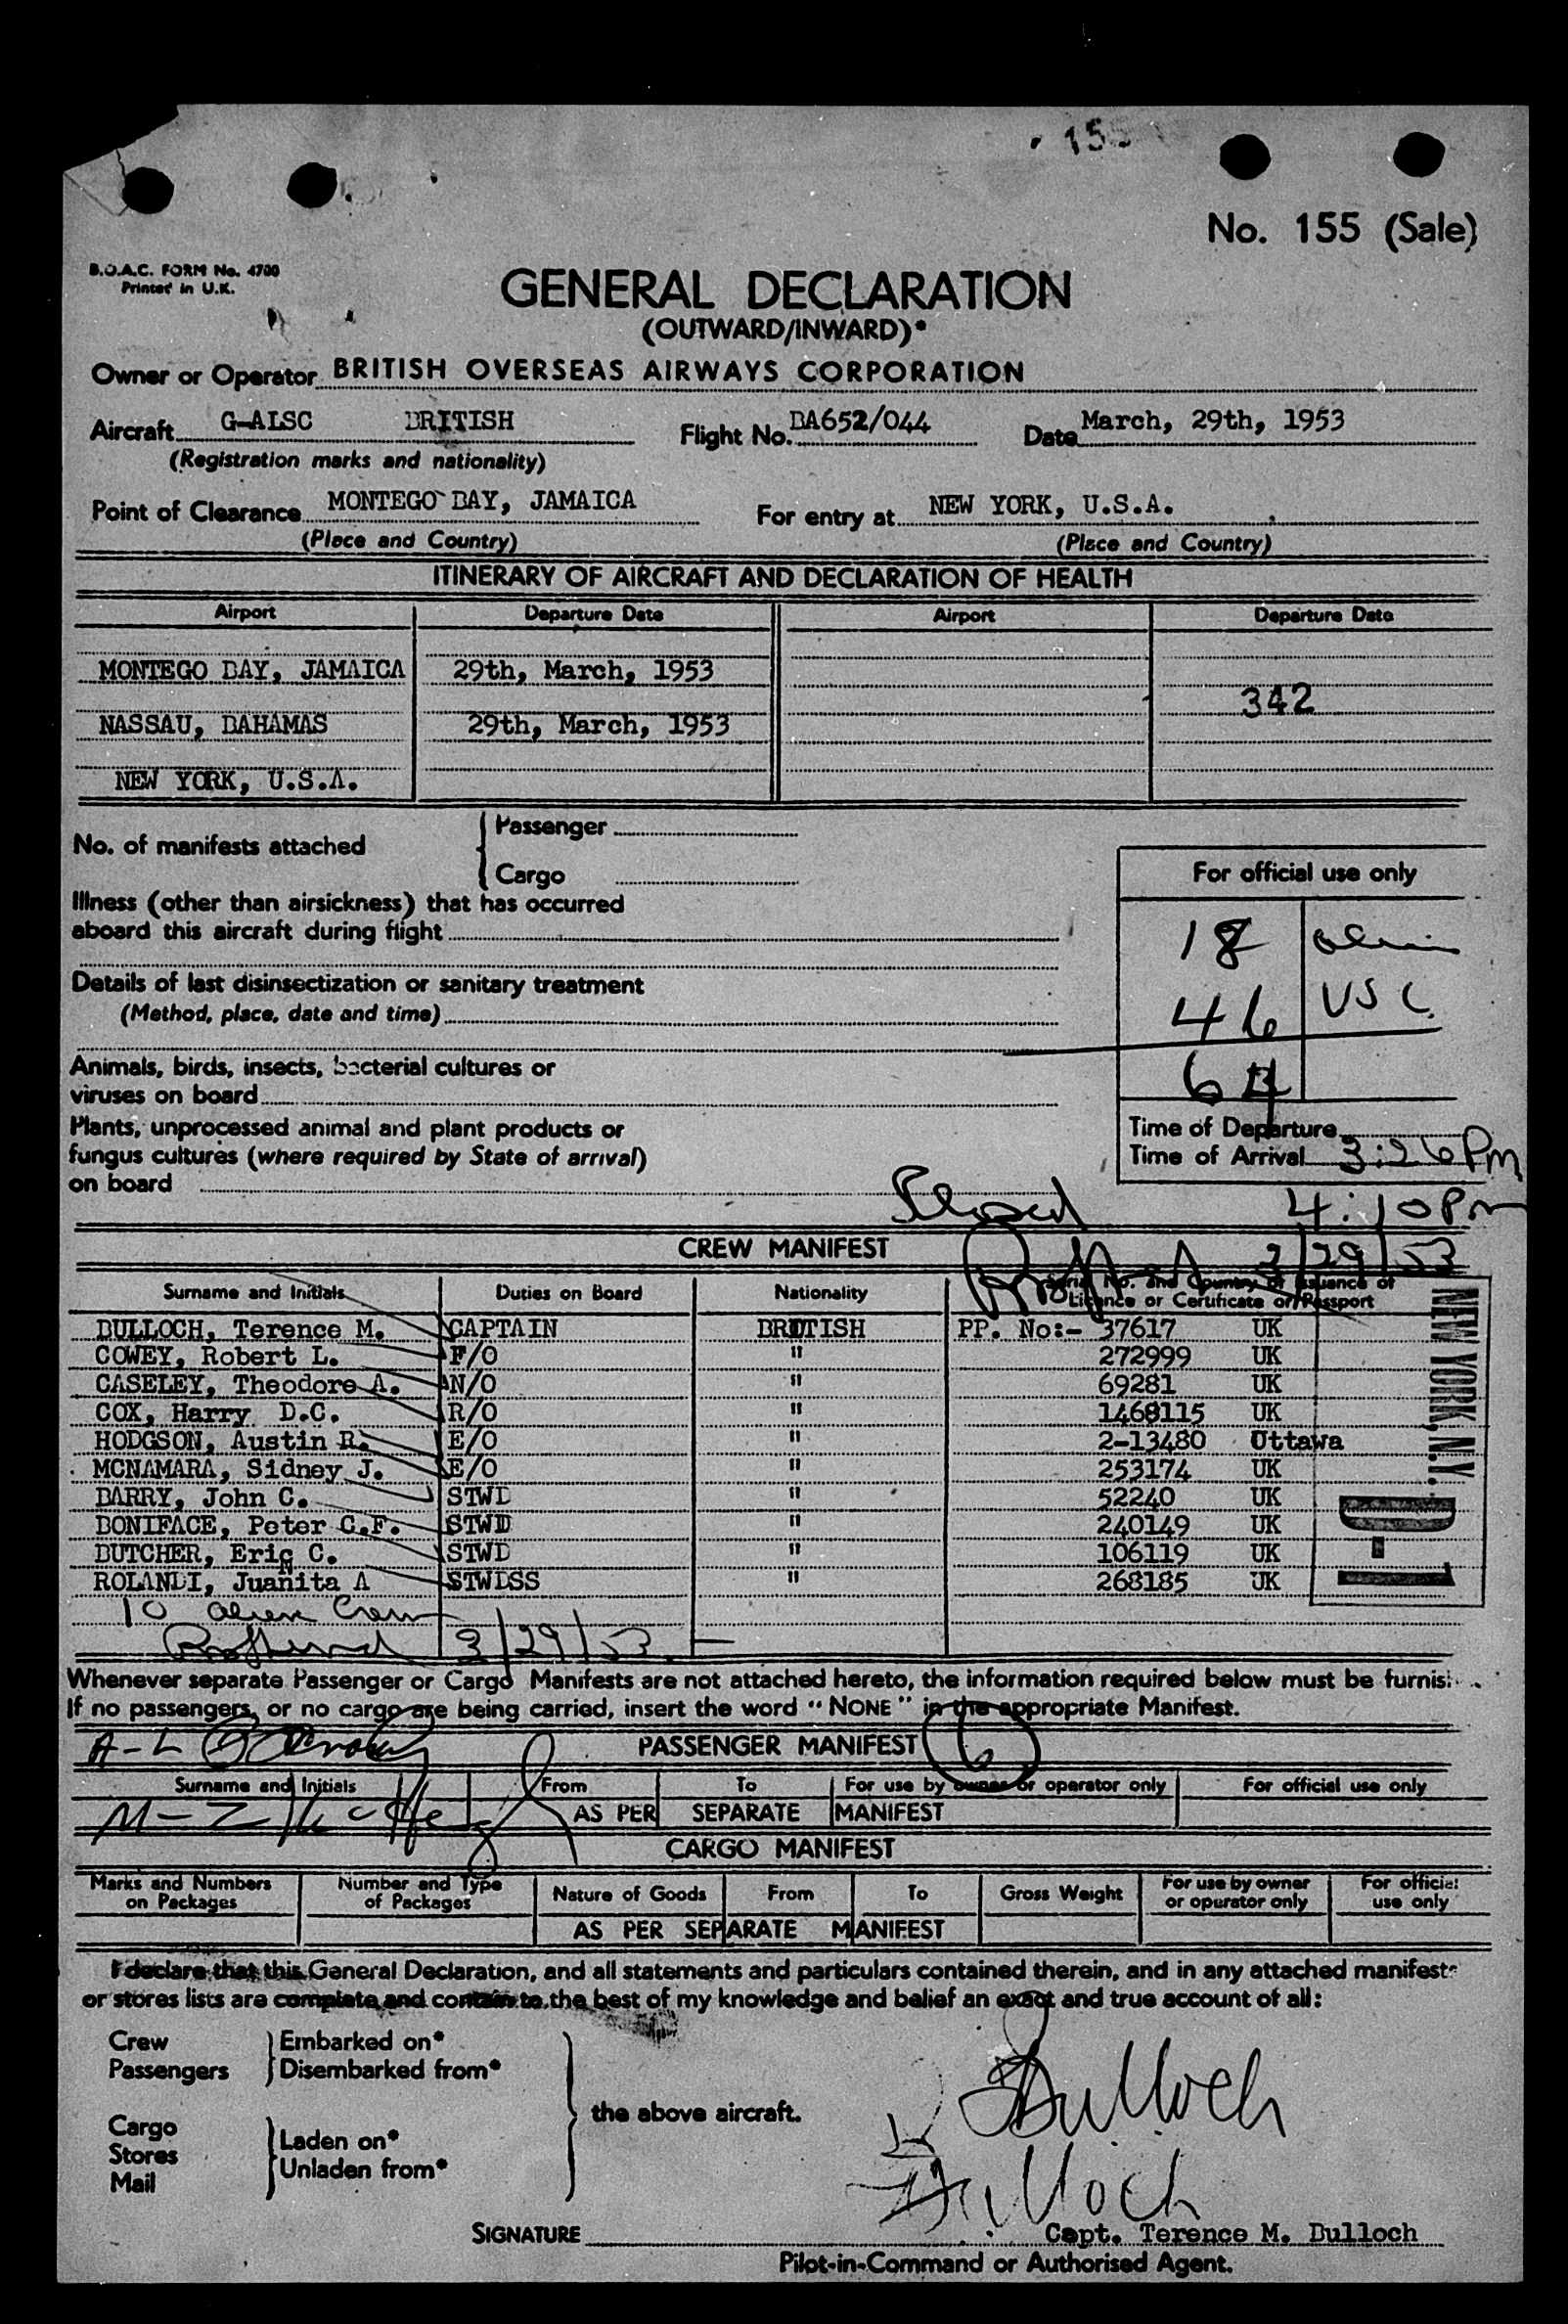 155
No. 155 (Sale)
B.O.A.C. FORM No. 4700
Printed in U.K.
GENERAL DECLARATION
(OUTWARD/INWARD)*
Owner or Operator BRITISH OVERSEAS AIRWAYS CORPORATION
Aircraft G-ALSC BRITISH Flight No. BA652/044 Date March, 29th, 1953
(Registration marks and nationality)
Point of Clearance MONTEGO BAY, JAMAICA For entry at NEW YORK, U.S.A.
(Place and Country) (Place and Country)
ITINERARY OF AIRCRAFT AND DECLARATION OF HEALTH
Airport Departure Date Airport Departure Date
MONTEGO BAY, JAMAICA 29th, March, 1953
342
NASSAU, BAHAMAS 29th, March, 1953
NEW YORK, U.S.A.
No. of manifests attached
Passenger
Cargo
For official use only
Illness (other than airsickness) that has occurred
aboard this aircraft during flight
18 alien
Details of last disinsectization or sanitary treatment
(Method, place, date and time)
46 USC
64
Animals, birds, insects, bacterial cultures or
viruses on board
Plants, unprocessed animal and plant products or
fungus cultures (where required by State of arrival)
on board
Time of Departure
Time of Arrival 3:26 PM
4:10 PM
CREW MANIFEST 3/29/53
Surname and Initials Duties on Board Nationality Serial No. and Country of Issuance of
Licence or Certificate or Passport
BULLOCH, Terence M. CAPTAIN BRITISH PP. No:- 37617 UK
COWEY, Robert L. F/O " 272999 UK
CASELEY, Theodore A. N/O " 69281 UK
COX, Harry D.C. R/O " 1468115 UK
HODGSON, Austin R. E/O " 2-13480 Ottawa
MCNAMARA, Sidney J. E/O " 253174 UK
BARRY, John C. STWD " 52240 UK
BONIFACE, Peter C.F. STWD " 240149 UK
BUTCHER, Eric C. STWD " 106119 UK
ROLANDI, Juanita A STWDSS " 268185 UK
NEW YORK, N.Y.
D-1
10 alien Crew
3/29/53
Whenever separate Passenger or Cargo Manifests are not attached hereto, the information required below must be furnis
If no passengers, or no cargo are being carried, insert the word "NONE" in the appropriate Manifest.
A-L
PASSENGER MANIFEST
Surname and Initials From To For use by owner or operator only For official use only
M-Z
AS PER SEPARATE MANIFEST
CARGO MANIFEST
Marks and Numbers on Packages Number and Type of Packages Nature of Goods From To Gross Weight For use by owner or operator only For official use only
AS PER SEPARATE MANIFEST
I declare that this General Declaration, and all statements and particulars contained therein, and in any attached manifests
or stores lists are complete and contain to the best of my knowledge and belief an exact and true account of all:
Crew Embarked on*
Passengers Disembarked from*
the above aircraft.
Cargo
Stores
Mail
Laden on*
Unladen from*
Bulloch
Bulloch
SIGNATURE Capt. Terence M. Bulloch
Pilot-in-Command or Authorised Agent.